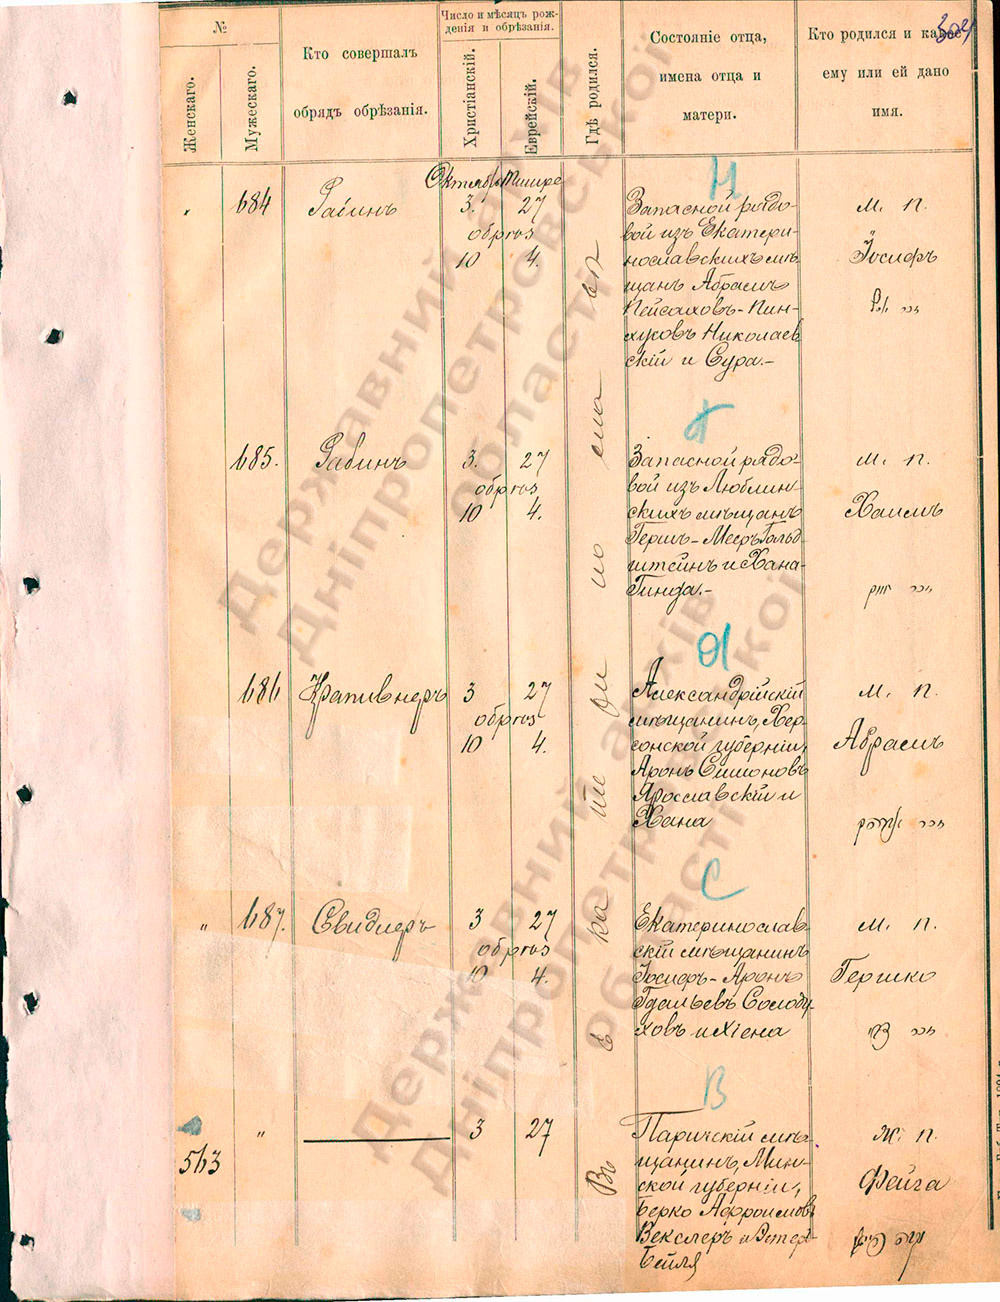 304
№
Женскаго.
Мужескаго.
Кто совершалъ
обрядъ обрѣзанія.
Число и мѣсяцъ рож-
денія и обрѣзанія.
Христіанскій.
Еврейскій.
Гдѣ родился.
Состояніе отца,
имена отца и
матери.
Кто родился и какое
ему или ей дано
имя.
Въ Екатеринославѣ
Н
684
Рабинъ
Октябрь Тишре
3. 27
обрѣз
10 4.
Запасной рядо-
вой изъ Екатери-
нославскихъ мѣ-
щанъ Абрамъ
Пейсаховъ-Пин-
хусовъ Николаев
скій и Сура.-
м. п.
Іосифъ
זכר
Г
685.
Рабинъ
3. 27
обрѣз
10 4.
Запасной рядо-
вой изъ Люблин
скихъ мѣщанъ
Гершъ-Мееръ Гольд-
штейнъ и Хана-
Гинда.-
м. п.
Хаимъ
זכר חיים
Я
686
Крапивнеръ
3 27
обрѣз
10 4.
Александрійскій
мѣщанинъ, Хер-
сонской губерніи,
Аронъ Симоновъ
Ярославскій и
Хана
м. п.
Абрамъ
זכר אברהם
С
687.
Свидлеръ
3 27
обрѣз
10 4.
Екатеринослав-
скій мѣщанинъ
Іосифъ-Аронъ
Гдальевъ Солоду-
ховъ и Хіена
м. п.
Гершко
זכר צבי
В
563
3 27
Паричскій мѣ-
щанинъ, Мин-
ской губерніи,
Берко Афроимовъ
Векслеръ и Эстеръ-
Бейля
ж. п.
Фейга
נקבה פייגא
Державний архів
Дніпропетровської
області
Державний архів
Дніпропетровської
області